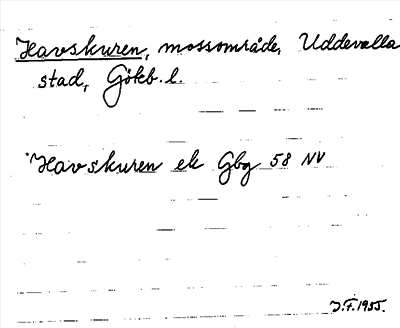 Havskuren, mossområde, Uddevalla
stad, Götb. l.
Havskuren ek Gbg 58 NV
J.F. 1955.